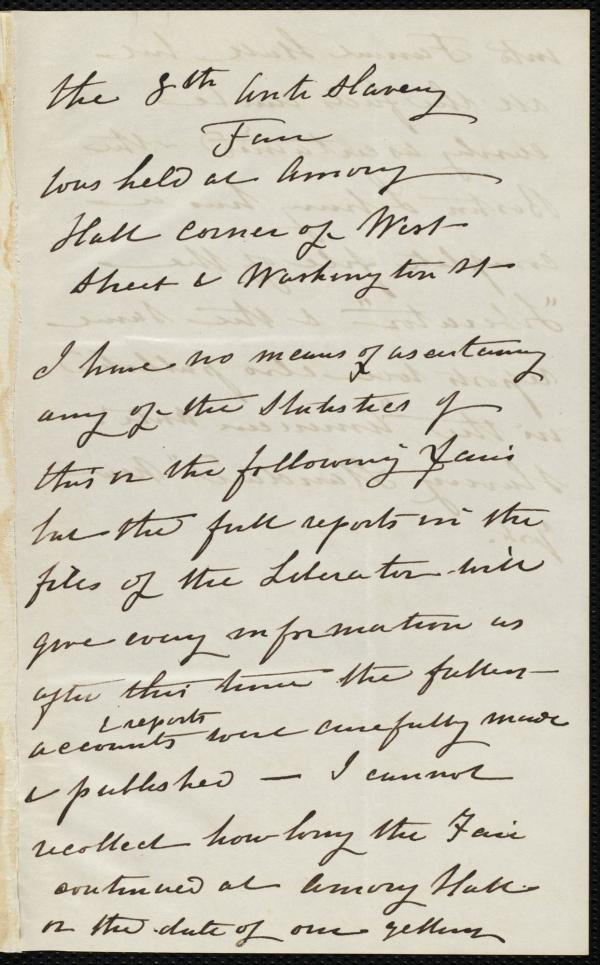 the 8th Anti Slavery
Fair
was held at Amory
Hall corner of West
Street & Washington St
I have no means of ascertaining
any of the Statistics of
this or the following Fairs
but the full reports in the
files of the Liberator will
give every information as
after this time the fullest
& reports
accounts were carefully made
& published — I cannot
recollect how long the Fair
continued at Amory Hall
or the date of our getting